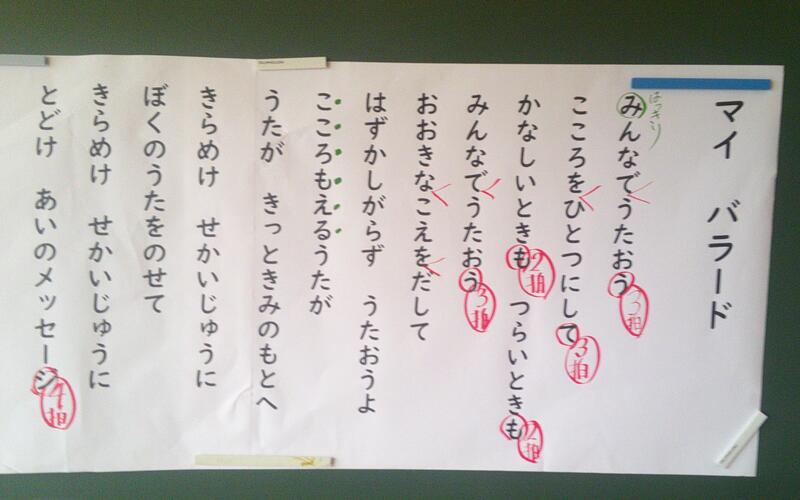 マイ バラード
はっきり
みんなでうたおう
3拍
こころをひとつにして
3拍
かなしいときも つらいときも
2拍
2拍
みんなでうたおう
3拍
おおきなこえをだして
はずかしがらず うたおうよ
こころもえるうたが
うたが きっときみのもとへ
きらめけ せかいじゅうに
ぼくのうたをのせて
きらめけ せかいじゅうに
とどけ あいのメッセージ
4拍